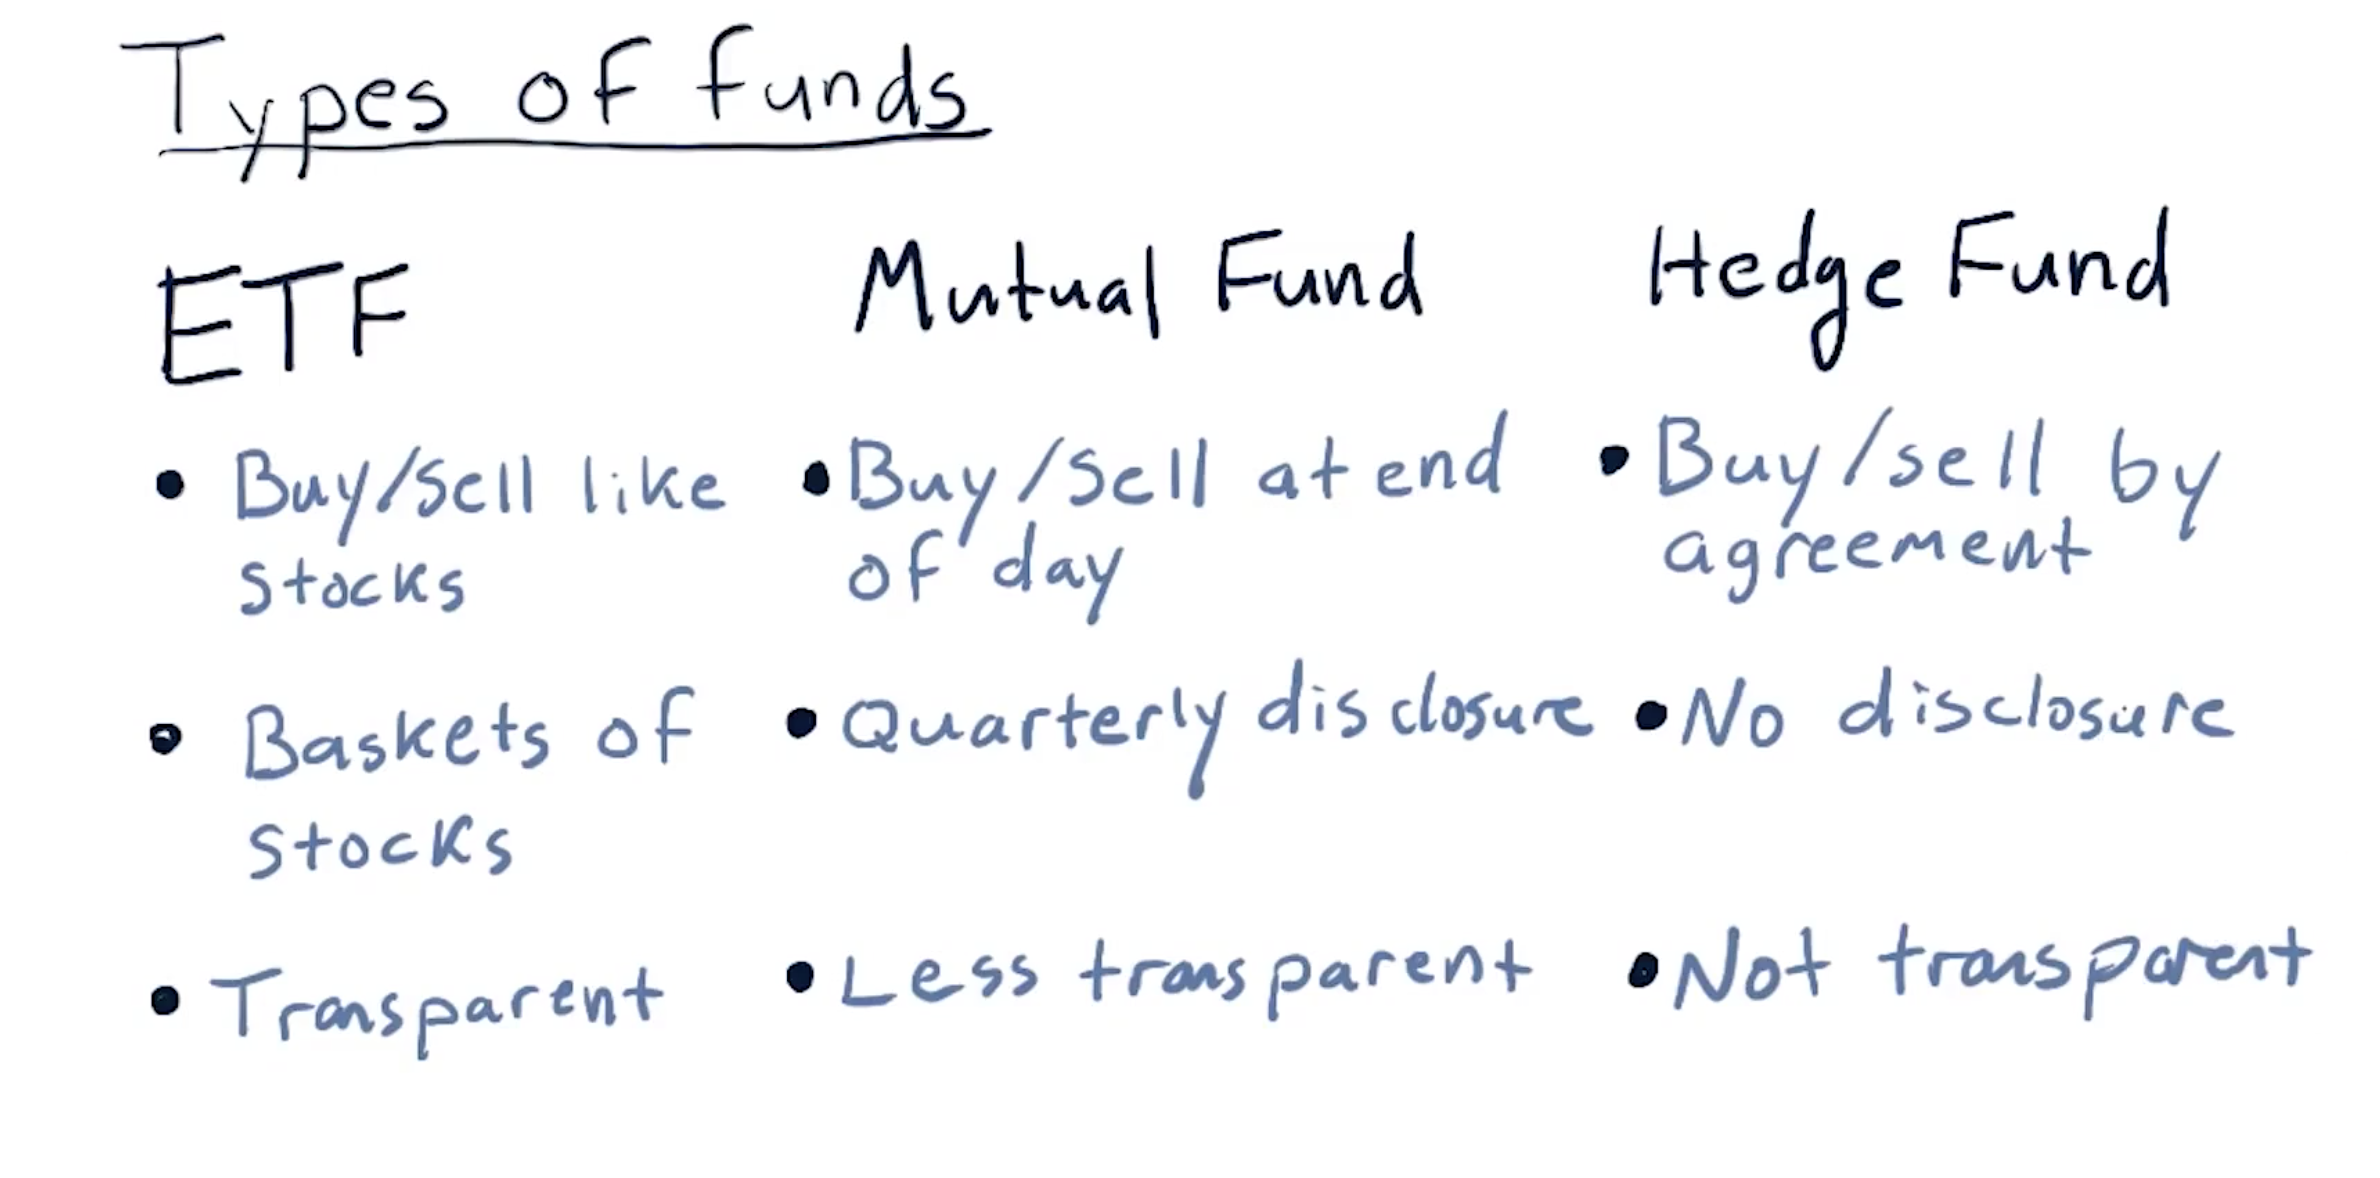 Types of funds
ETF
• Buy/sell like
stocks
• Baskets of
stocks
• Transparent
Mutual Fund
• Buy/sell at end
of day
• Quarterly disclosure
• Less transparent
Hedge Fund
• Buy/sell by
agreement
• No disclosure
• Not transparent